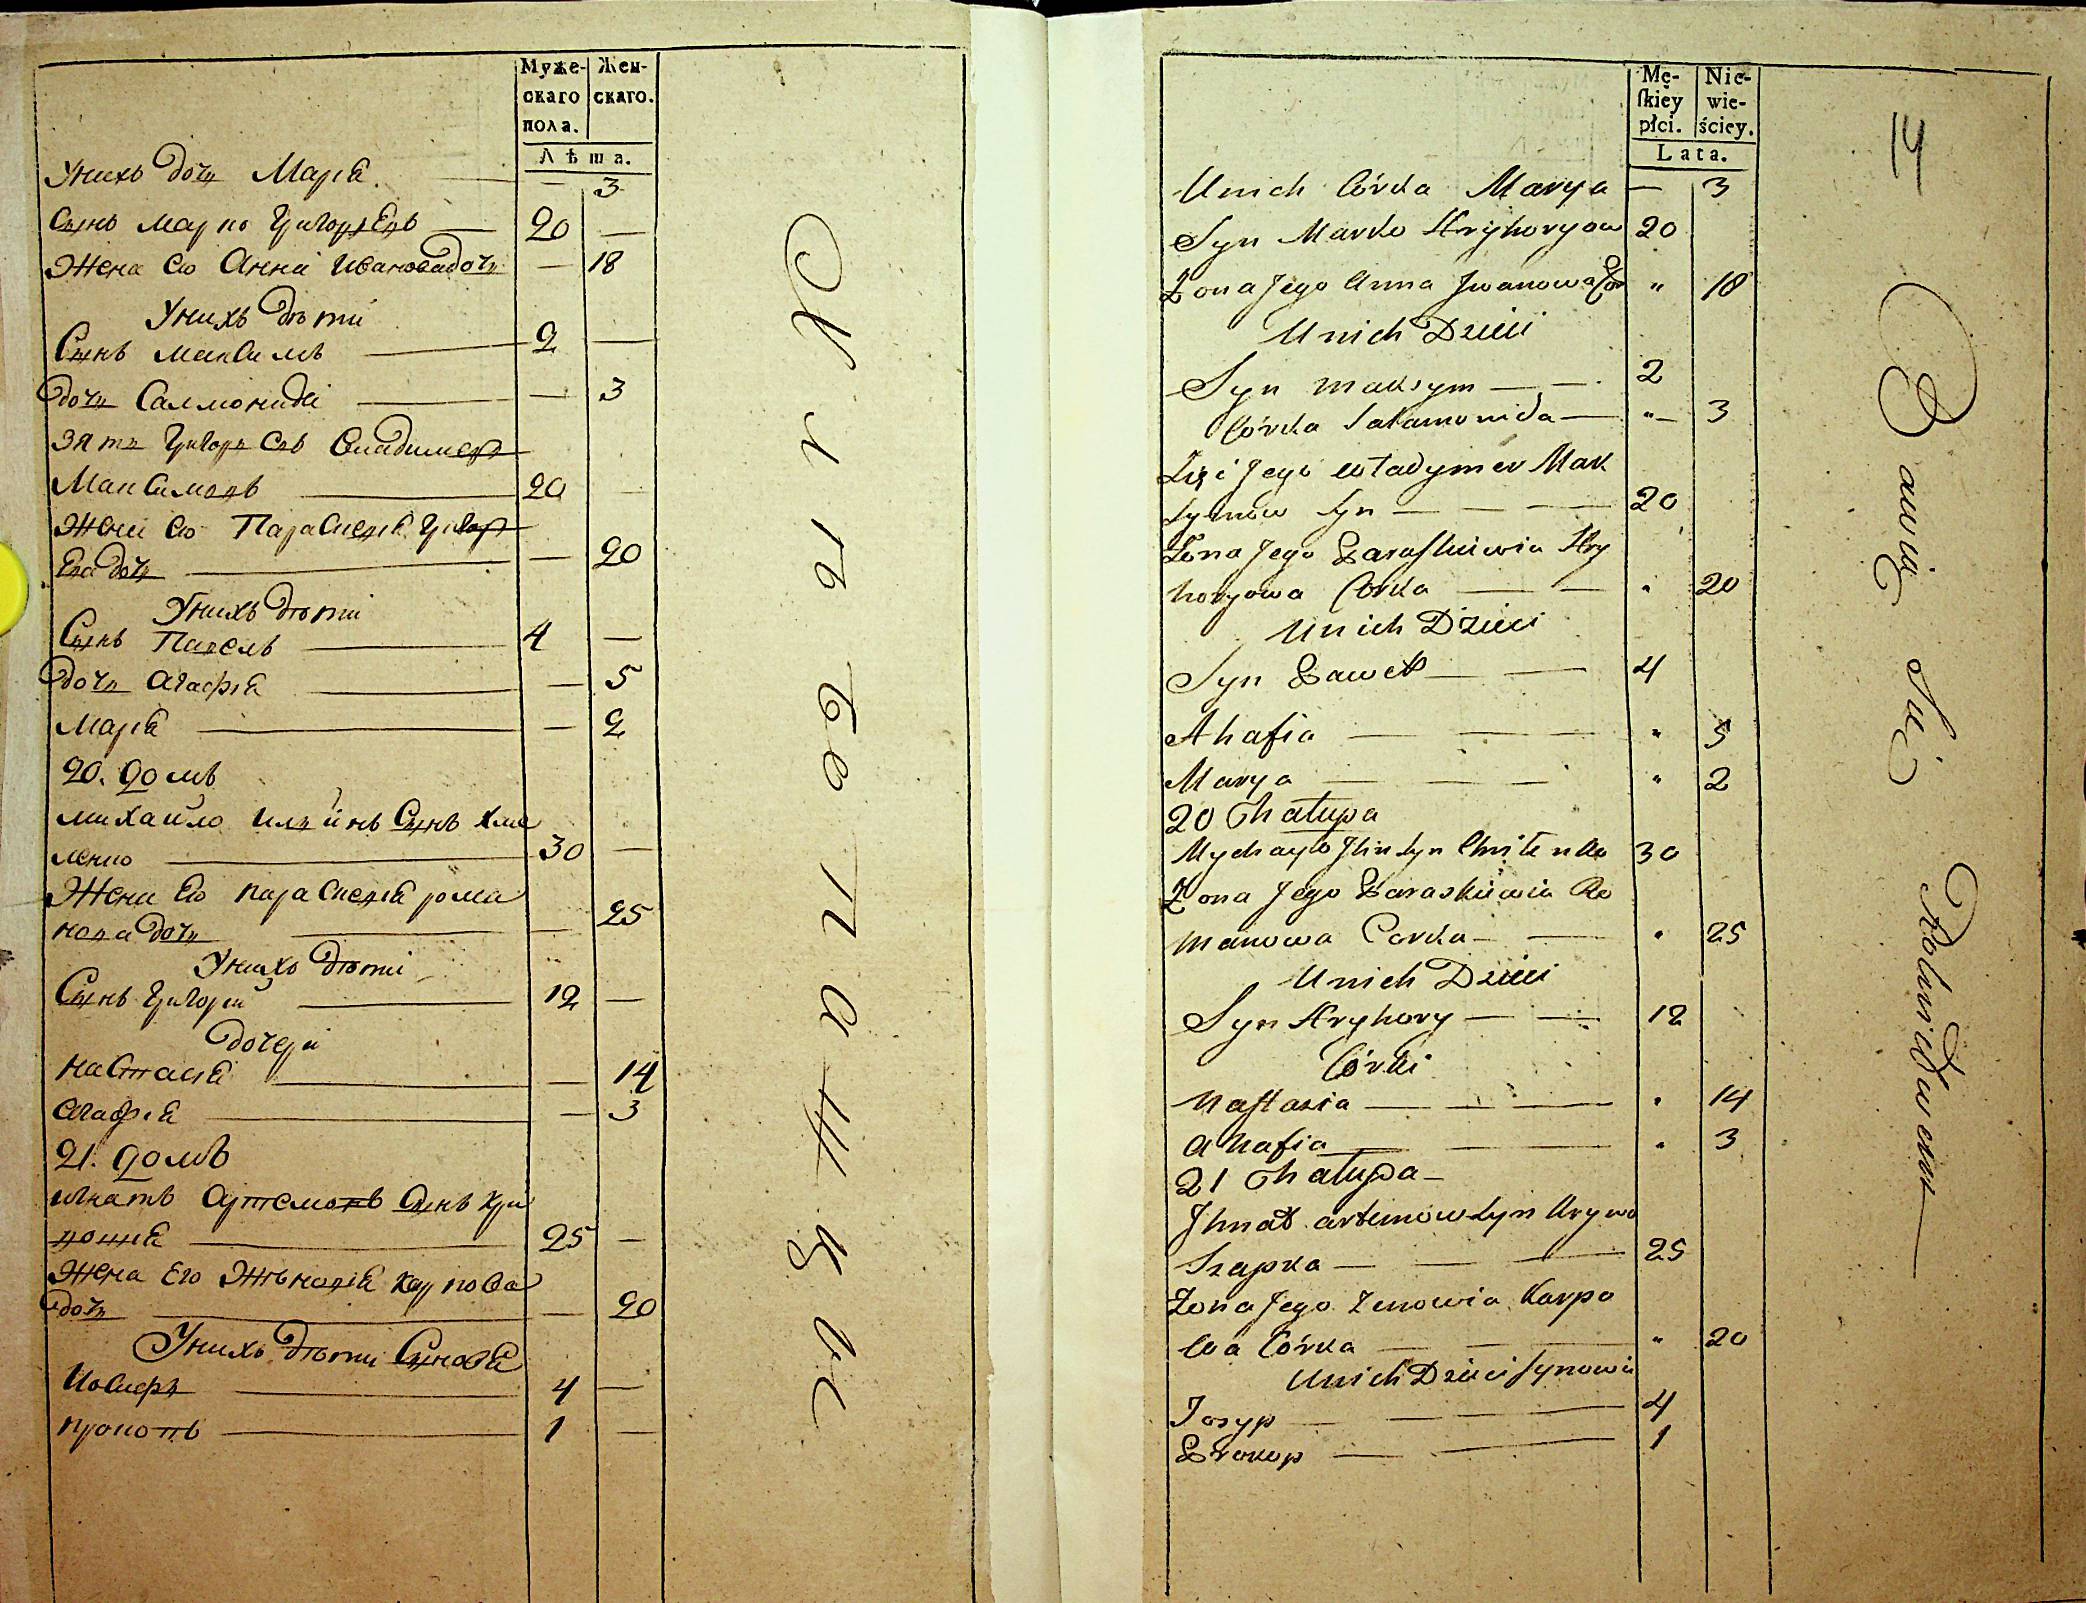 Муже-
скаго
пола.
Жен-
скаго.
Лѣта.
Унихъ дочь Марія — 3
Сынъ Марко Григорьевъ 20 —
Жена его Анна Ивановадочь — 18
Унихъ дѣти
Сынъ Максимъ 2 —
дочь Саломонида — 3
Зять Григорьевъ Владимеръ
Максимовъ 20 —
Жена его Параскевія Григор
ева дочь — 20
Унихъ дѣти
Сынъ Павелъ 4 —
дочь Агафія — 5
Марія — 2
20. домъ
Михайло Ильинъ Сынъ Хме
ленко 30 —
Жена его Параскевія рома
нова дочь — 25
Унихъ дѣти
Сынъ Григорій 12 —
дочери
Настасія — 14
Агафія — 3
21. домъ
Игнатъ Артемовъ Сынъ Кри
25 —
Жена Его Жѣновія Карпова
дочь — 20
Унихъ дѣти Сыновя
Иосифъ 4 —
Прокопъ 1 —
Mę-
ſkiéy
płci.
Nie-
wie-
ściey.
Lata.
14
Unich Córka Marya — 3
Syn Marko Hryhoryow 20
Żona Jego Anna Jwanowa Cor " 18
Unich Dzieci
Syn Maksym — — 2
Córka Salamonida — "— 3
Zięć Jego Władymer Mak
symów Syn — — — 20
Żona Jego Paraskiewia Hry
horyowa Corka — — " 20
Unich Dzieci
Syn Paweł — — 4
Ahafia — — — " 5
Marya — — — " 2
20 Chałupa
Mychayło Jlin Syn Chmilenko 30
Żona Jego Paraskiewia Ro
manowa Corka — — " 25
Unich Dzieci
Syn Hryhory — — 12
Córki
Nastazia — — — " 14
Ahafia — — " 3
21 Chałupa —
Jhnat Artemów Syn Krywo
Szapka — — — 25
Żona Jego Zenowia Karpo
wa Córka — — — " 20
Unich Dzieci Synowie
Jozyp — — — 4
Prokop — — 1